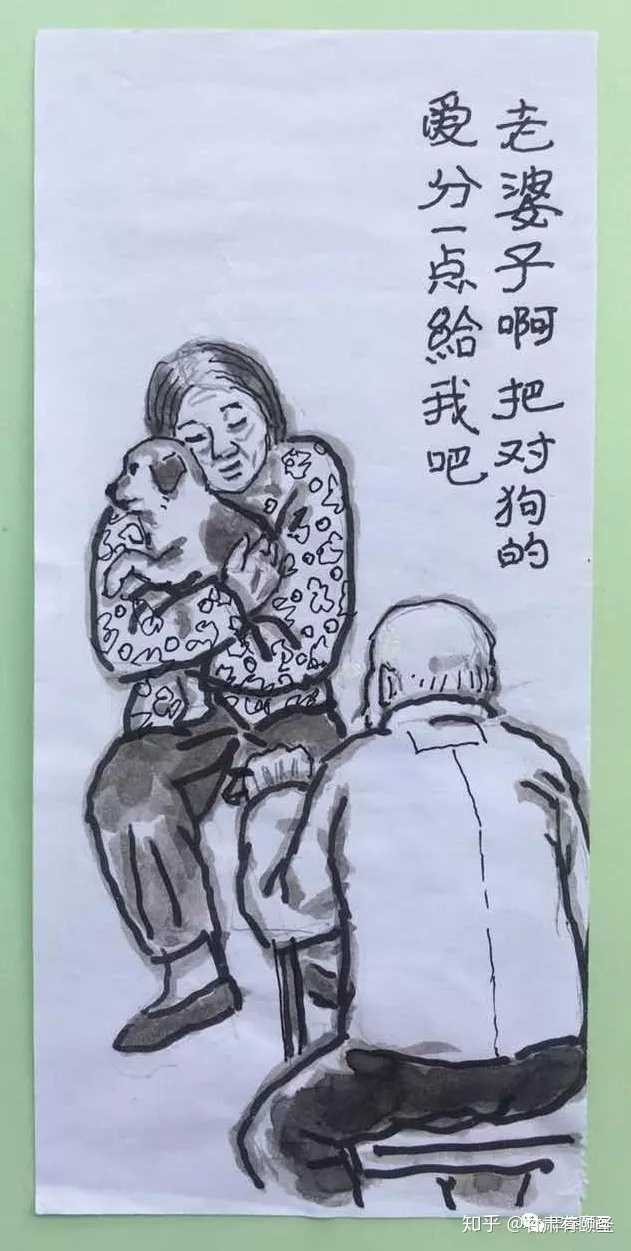 老婆子啊把对狗的
爱分一点給我吧
知乎